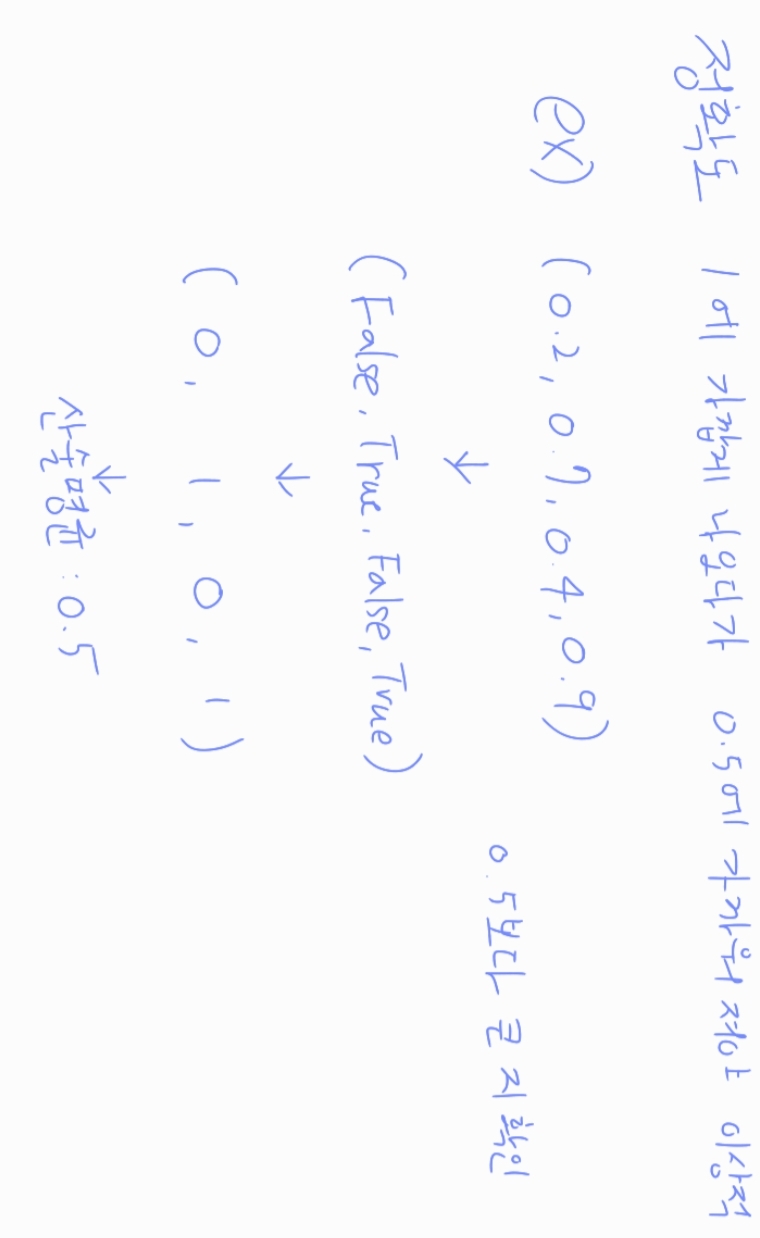 정확도 1에 가깝게 나오다가 0.5에 가까워져야 이상적
ex) (0.2, 0.7, 0.4, 0.9)
0.5보다 큰지 확인
↓
(False, True, False, True)
↓
(0, 1, 0, 1)
↓
산술평균 : 0.5